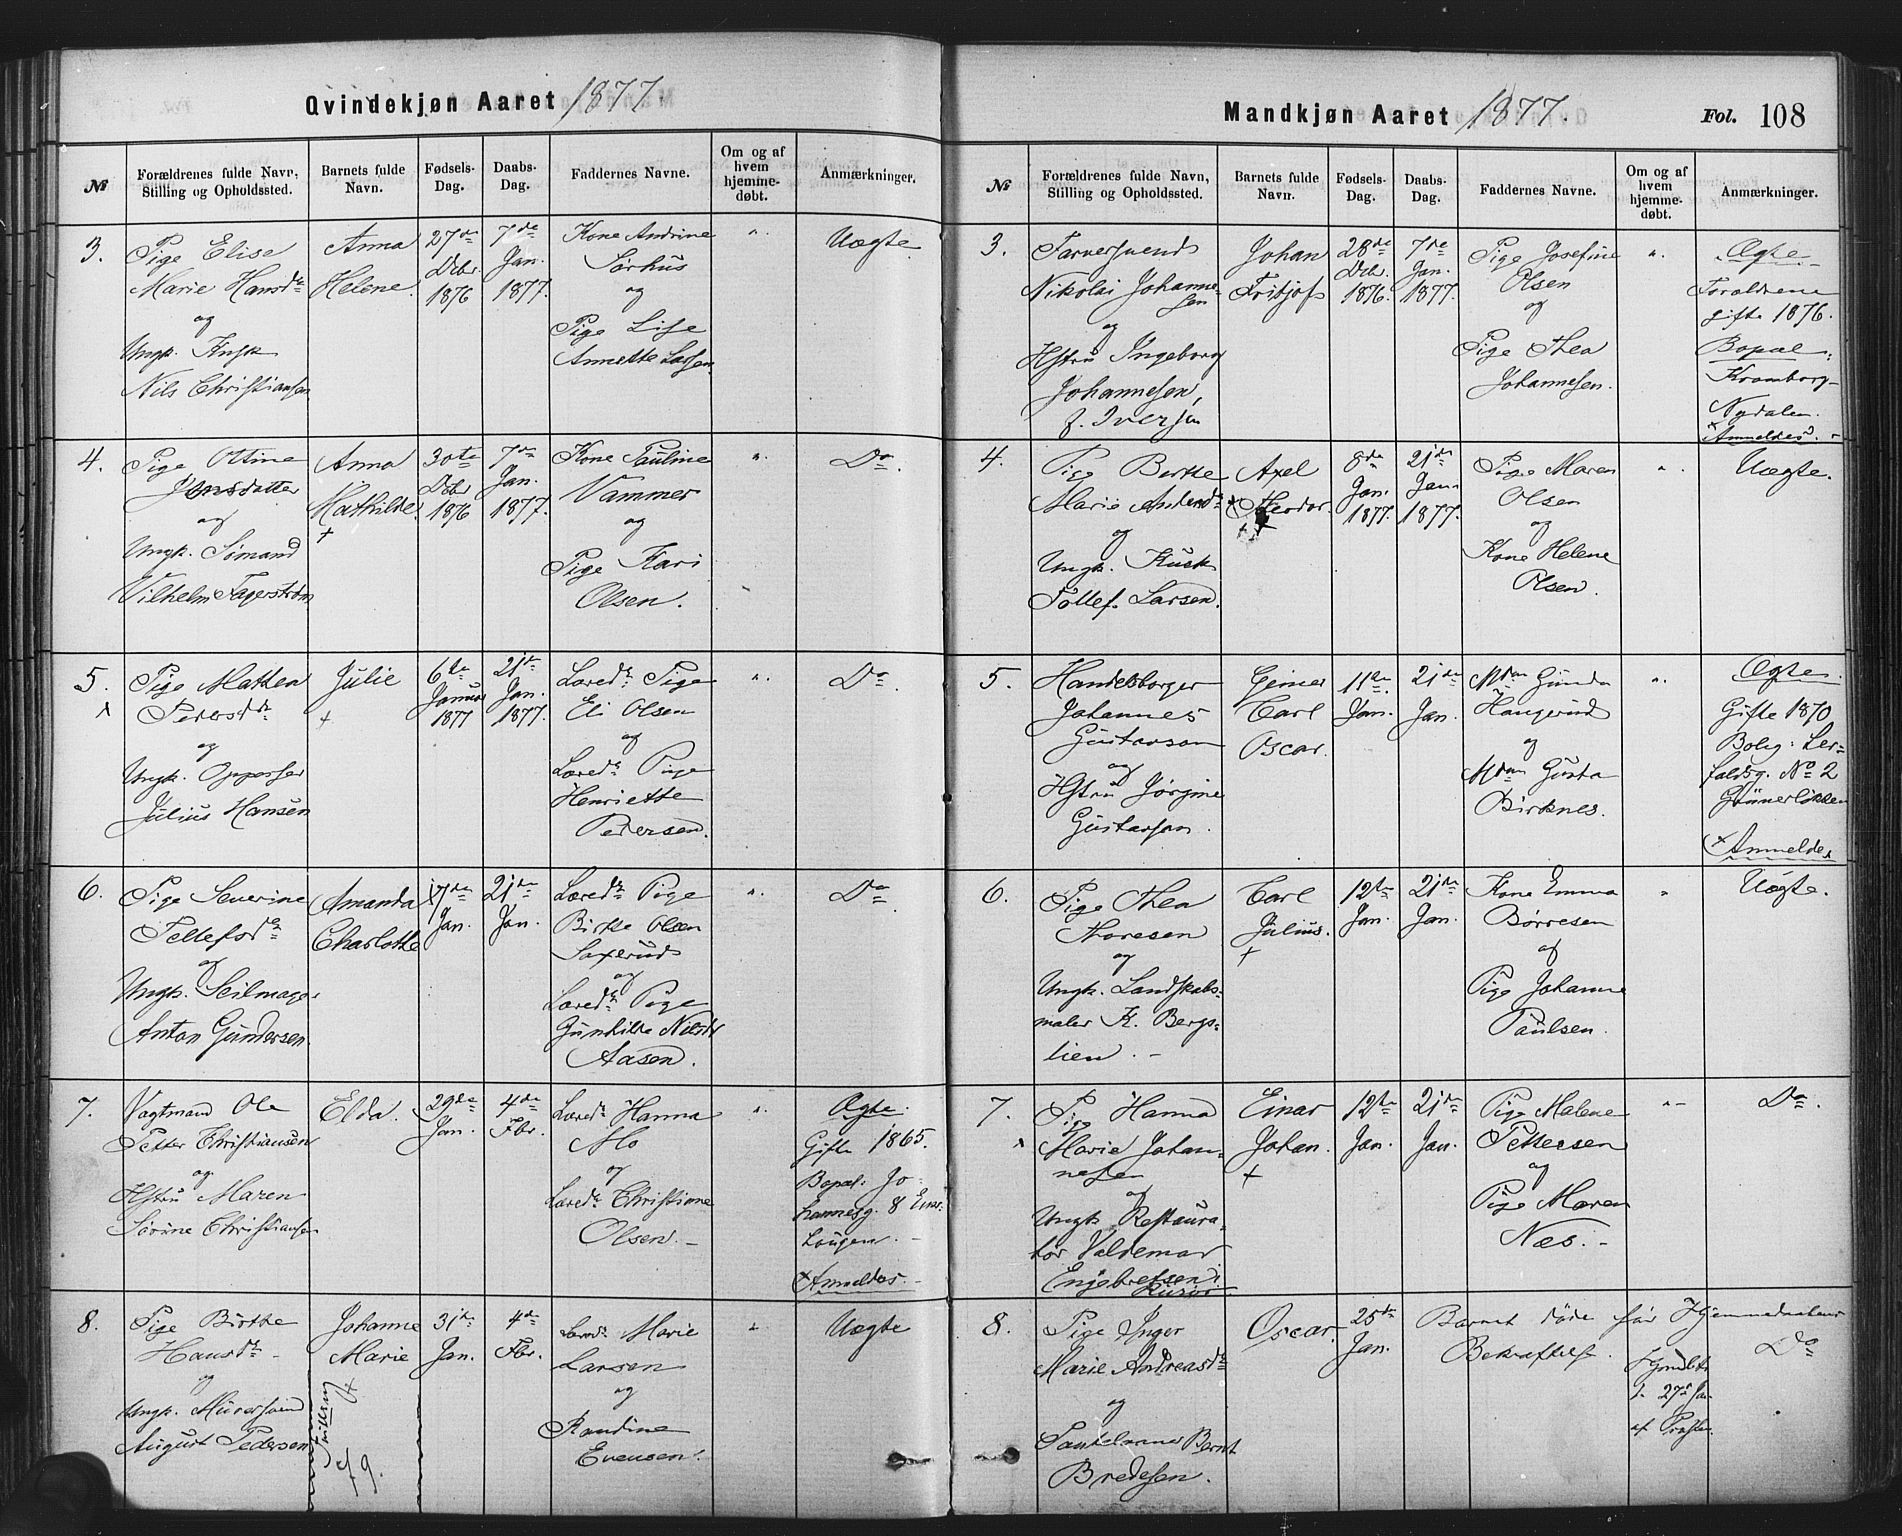 Qvindekjøn Aaret 1877.
№
Forældrenes fulde Navn,
Stilling og Opholdssted.
Barnets fulde
Navn.
Fødsels-
Dag.
Daabs-
Dag.
Faddernes Navne.
Om og af
hvem
hjemme-
døbt.
Anmærkninger.
3.
Pige Elise
Marie Hansdr
og
Ungk. Kusk
Nils Christiansen
Anna
Helene.
27de
Decbr.
1876
7de
Jan.
1877.
Kone Andrine
Sørhus
og
Pige Lise
Annette Larsen
"
Uægte
4.
Pige Ottine
Jensdatter
og
Ungk. Sømand
Vilhelm Fagerstrøm
Anna
Mathilde.
+
30te
Dcbr
1876
7de
Jan.
1877.
Kone Pauline
Vammer
og
Pige Kari
Olsen.
"
Do.
5.
Pige Mathea
Pedersdr
og
Ungk. Oppasser
Julius Hansen
Julie
+
6te
Januar
1877
21de
Jan.
1877.
Lared. Pige
Eli Olsen
og
Lared. Pige
Henriette
Pedersen.
"
Do.
6.
Pige Severine
Tellefsdr
og
Ungk. Seilmager
Anton Gundersen.
Amanda
Charlotte
17de
Jan.
21de
Jan.
Lared. Pige
Birthe Olsen
Saxerud
og
Lared. Pige
Gunhilde Nilsdr
Aasen.
"
Do
7.
Vagtmand Ole
Petter Christiansen
og
Hstru Maren
Sørine Christiansen
Elda.
29de
Jan.
4de
Fbr.
Lared. Hanna
Mo
og
Lared. Christiane
Olsen. –
"
Ægte.
Gifte 1865.
Bopæl: Jo-
hannesg. 8 Ener
Løugen. –
+ Anmeldes. –
8.
Pige Birthe
Hansdr –
og
Ungk. Mursvend
August Pedersen
Johanne
Marie
+
79.
31de
Jan.
4de
Fbr.
Lared. Marie
Larsen
og
Randine
Evensen.
"
Uægte
Mandkjøn Aaret 1877.
Fol. 108
№
Forældrenes fulde Navn,
Stilling og Opholdssted.
Barnets fulde
Navn.
Fødsels-
Dag.
Daabs-
Dag.
Faddernes Navne.
Om og af
hvem
hjemme-
døbt.
Anmærkninger.
3.
Farversvend
Nikolai Johanne-
sen
og
Hstru Ingeborg
Johannesen,
f. Iversen
Johan
Fritjof
28de
Dcbr.
1876.
7de
Jan.
1877.
Pige Josefine
Olsen
og
Pige Thea
Johannesen.
"
Ægte
Forældrene
gifte 1876.
Bopæl:
Kromborg
Nydalen.
+ Anmeldes. –
4.
Pige Berthe
Marie Andersdr
og
Ungk. Kusk
Tollef. Larsen.
Axel
Theodor.
+
8de
Jan.
1877.
21de
Jan.
1877.
Pige Maren
Olsen
og
Kone Helene
Olsen.
"
Uægte.
5.
Handelsborger
Johannes
Gustavson
og
Hstru Jørgine
Gustavson.
Geimer
Carl
Oscar.
11te
Jan.
21de
Jan.
Mdm Gunda
Haugerud
og
Mdm Gusta
Birknes.
"
Ægte.
Gifte 1870
Bolig: Ler-
faldsg. No 2
Grünerløkken
+ Anmeldes
6.
Pige Thea
Thoresen
og
Ungk. Landskabs-
maler K. Bergs-
lien. –
Carl
Julius.
+
12te
Jan.
21de
Jan.
Kone Emma
Børresen
og
Pige Johanne
Paulsen.
"
Uægte.
7.
Pige Hanna
Marie Johan-
nesen
og
Ungk. Restaura-
tør Valdemar
Engebretsen i
Einar
Johan.
+
12te
Jan.
21de
Jan.
Pige Malene
Pettersen
og
Pige Maren
Næs. –
" –
Do.
8.
Pige Inger
Marie Andreasdr
og
Bernt
Bredesen.
Oscar.
25de
Jan.
Barnet døde før Hjemmedaabens
Bekræftelse.
Hjemdbt
d. 27de Jan
af Præsten.
Do